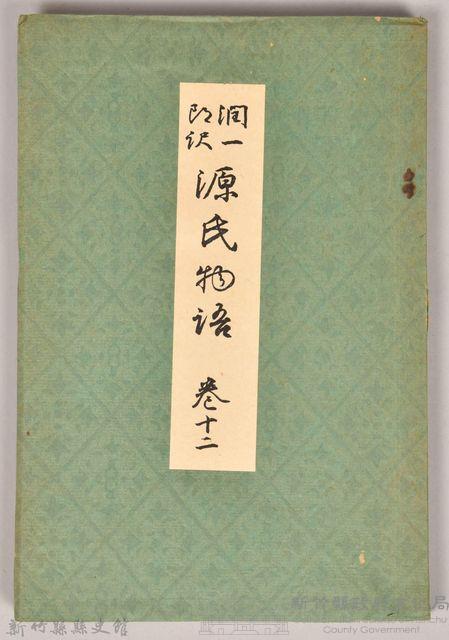 潤一
郎訳
源氏物語 巻十二
新竹縣縣史館
新竹縣政府文化局
County Government